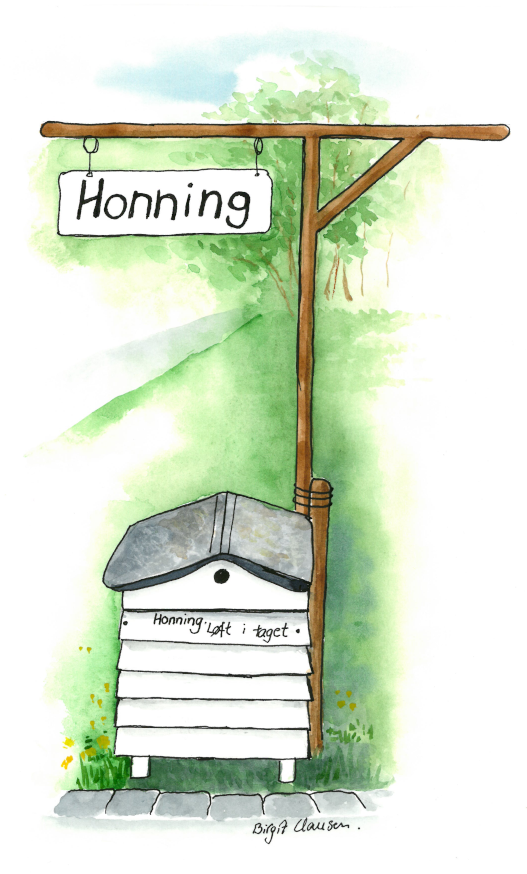 Honning
Honning. Løft i taget
Birgit Clausen.